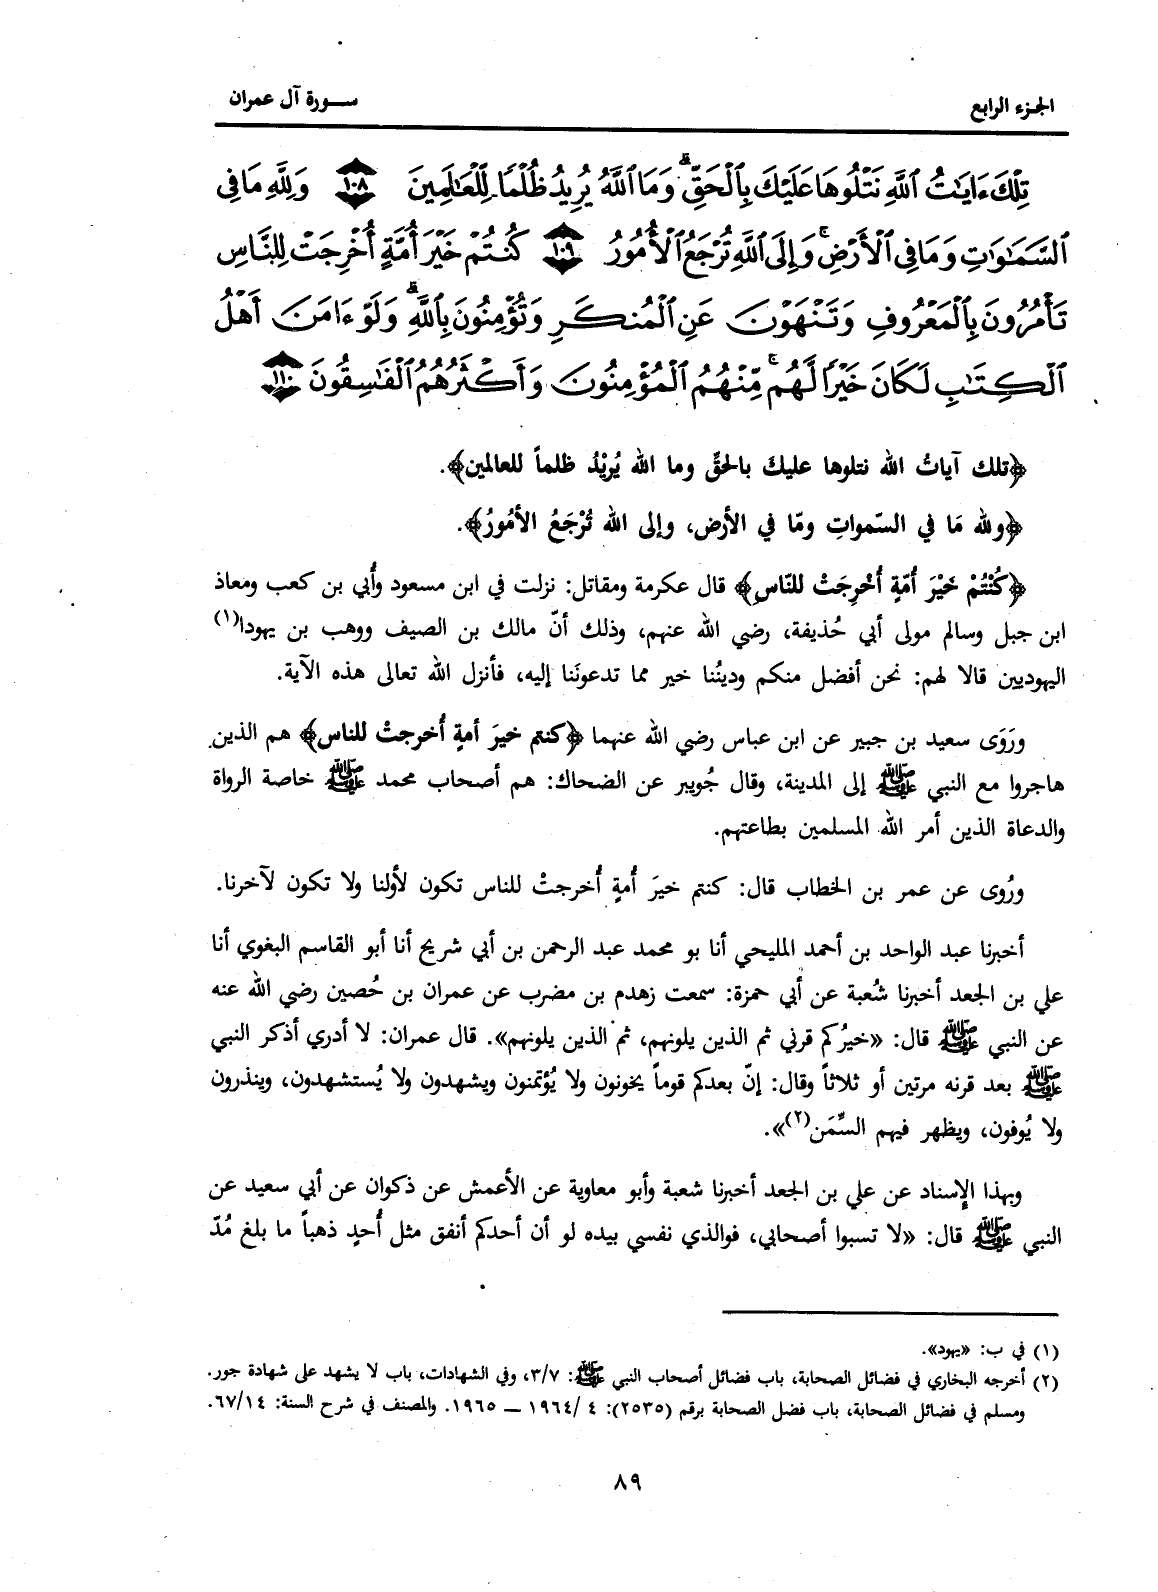 الجزء الرابع
سورة آل عمران
تِلْكَ ءَايَٰتُ ٱللَّهِ نَتْلُوهَا عَلَيْكَ بِٱلْحَقِّ ۗ وَمَا ٱللَّهُ يُرِيدُ ظُلْمًا لِّلْعَٰلَمِينَ ١٠٨ وَلِلَّهِ مَا فِى
ٱلسَّمَٰوَٰتِ وَمَا فِى ٱلْأَرْضِ ۚ وَإِلَى ٱللَّهِ تُرْجَعُ ٱلْأُمُورُ ١٠٩ كُنتُمْ خَيْرَ أُمَّةٍ أُخْرِجَتْ لِلنَّاسِ
تَأْمُرُونَ بِٱلْمَعْرُوفِ وَتَنْهَوْنَ عَنِ ٱلْمُنكَرِ وَتُؤْمِنُونَ بِٱللَّهِ ۗ وَلَوْ ءَامَنَ أَهْلُ
ٱلْكِتَٰبِ لَكَانَ خَيْرًا لَّهُم ۚ مِّنْهُمُ ٱلْمُؤْمِنُونَ وَأَكْثَرُهُمُ ٱلْفَٰسِقُونَ ١١٠
﴿تلك آياتُ الله نتلوها عليكَ بالحقِّ وما الله يُريْدُ ظلماً للعالمين﴾.
﴿ولله مَا في السّمواتِ ومّا في الأرض، وإلى الله تُرْجَعُ الأمُورُ﴾.
﴿كُنْتُمْ خَيْرَ أُمّةٍ أُخْرِجَتْ للنّاسِ﴾ قال عكرمة ومقاتل: نزلت في ابن مسعود وأُبي بن كعب ومعاذ
ابن جبل وسالم مولى أبي حُذيفة، رضي الله عنهم، وذلك أنّ مالك بن الصيف ووهب بن يهودا(١)
اليهوديين قالا لهم: نحن أفضل منكم ودينُنا خير مما تدعونَنا إليه، فأنزل الله تعالى هذه الآية.
ورَوَى سعيد بن جبير عن ابن عباس رضي الله عنهما ﴿كنتم خيرَ أمةٍ أُخرجتْ للناس﴾ هم الذين
هاجروا مع النبي ﷺ إلى المدينة، وقال جُويبر عن الضحاك: هم أصحاب محمد ﷺ خاصة الرواة
والدعاة الذين أمر الله المسلمين بطاعتهم.
ورُوى عن عمر بن الخطاب قال: كنتم خيرَ أُمةٍ أُخرجتْ للناس تكون لأولنا ولا تكون لآخرنا.
أخبرنا عبد الواحد بن أحمد المليحي أنا بو محمد عبد الرحمن بن أبي شريح أنا أبو القاسم البغوي أنا
علي بن الجعد أخبرنا شُعبة عن أبي حمزة: سمعت زهدم بن مضرب عن عمران بن حُصين رضي الله عنه
عن النبي ﷺ قال: «خيرُكم قرني ثم الذين يلونهم، ثم الذين يلونهم». قال عمران: لا أدري أذكر النبي
ﷺ بعد قرنه مرتين أو ثلاثاً وقال: إنّ بعدكم قوماً يخونون ولا يُؤتمنون ويشهدون ولا يُستشهدون، وينذرون
ولا يُوفون، ويظهر فيهم السِّمَن(٢)».
وبهذا الإسناد عن علي بن الجعد أخبرنا شعبة وأبو معاوية عن الأعمش عن ذكوان عن أبي سعيد عن
النبي ﷺ قال: «لا تسبوا أصحابي، فوالذي نفسي بيده لو أن أحدكم أنفق مثل أُحدٍ ذهباً ما بلغ مُدّ
(١) في ب: «يهود».
(٢) أخرجه البخاري في فضائل الصحابة، باب فضائل أصحاب النبي ﷺ: ٣/٧، وفي الشهادات، باب لا يشهد على شهادة جور.
ومسلم في فضائل الصحابة، باب فضل الصحابة برقم (٢٥٣٥): ٤ /١٩٦٤ ــ ١٩٦٥. والمصنف في شرح السنة: ٦٧/١٤.
٨٩